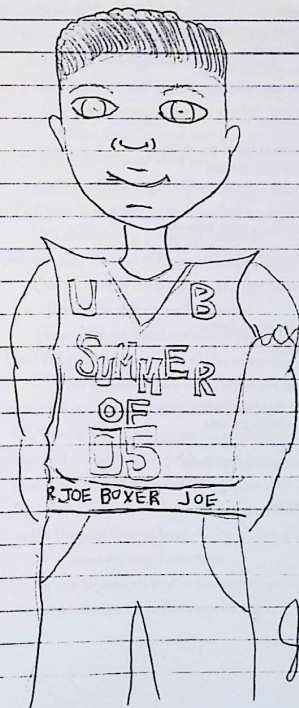 U B
SUMMER
OF
05
R JOE BOXER JOE